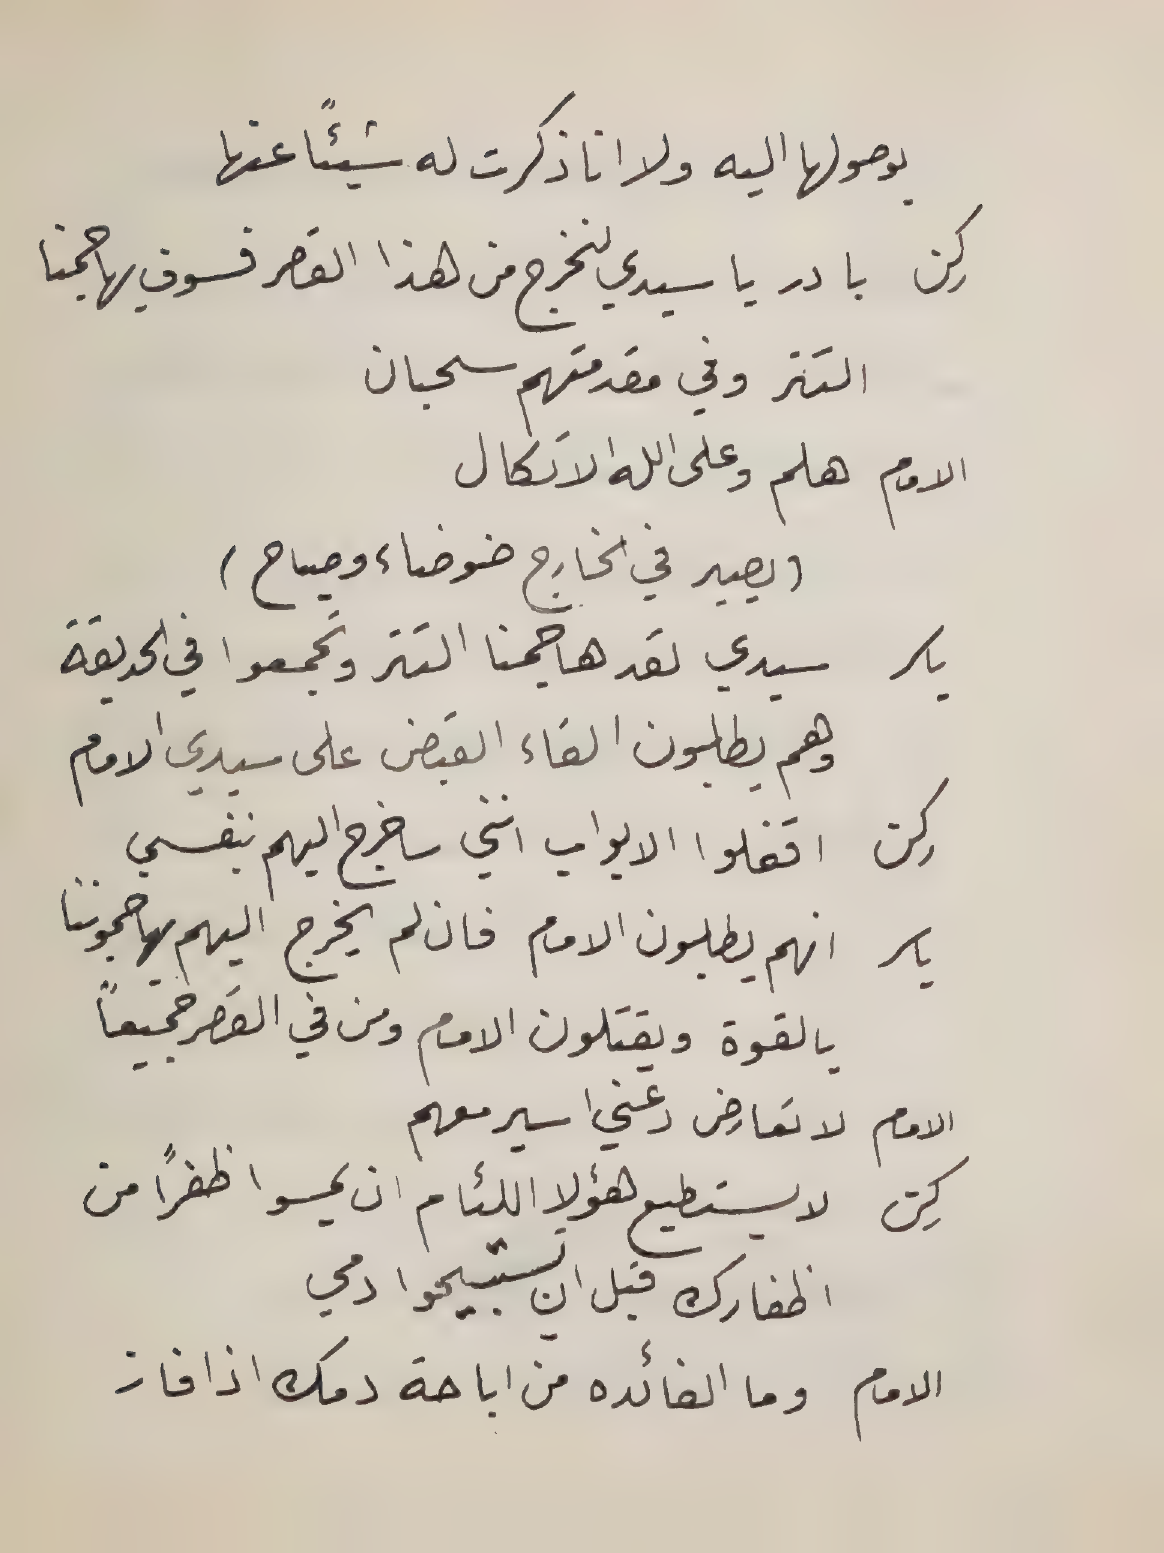 بوصولها اليه ولا انا ذكرت له شيئًا عنها
ركن بادر يا سيدي لنخرج من هذا القصر فسوف يهاجمنا
التتر وفي مقدمتهم سحبان
الامام هلم وعلى الله الاتكال
(ويصير في الخارج ضوضاء وصياح)
ياسر سيدي لقد هاجمنا التتر وتجمعوا في الحديقة
وهم يطلبون القاء القبض على سيدي الامام
ركن اقفلوا الابواب انني ساخرج اليهم بنفسي
ياسر انهم يطلبون الامام فان لم يخرج اليهم يهاجموننا
بالقوة ويقتلون الامام ومن في القصر جميعاً
الامام لا تعارض دعني اسير معهم
ركن لا يستطيع هؤلا اللئام ان يمسوا ظفرًا من
اظفارك قبل ان يستبيحوا دمي
الامام وما الفائده من اباحة دمك اذا فاز